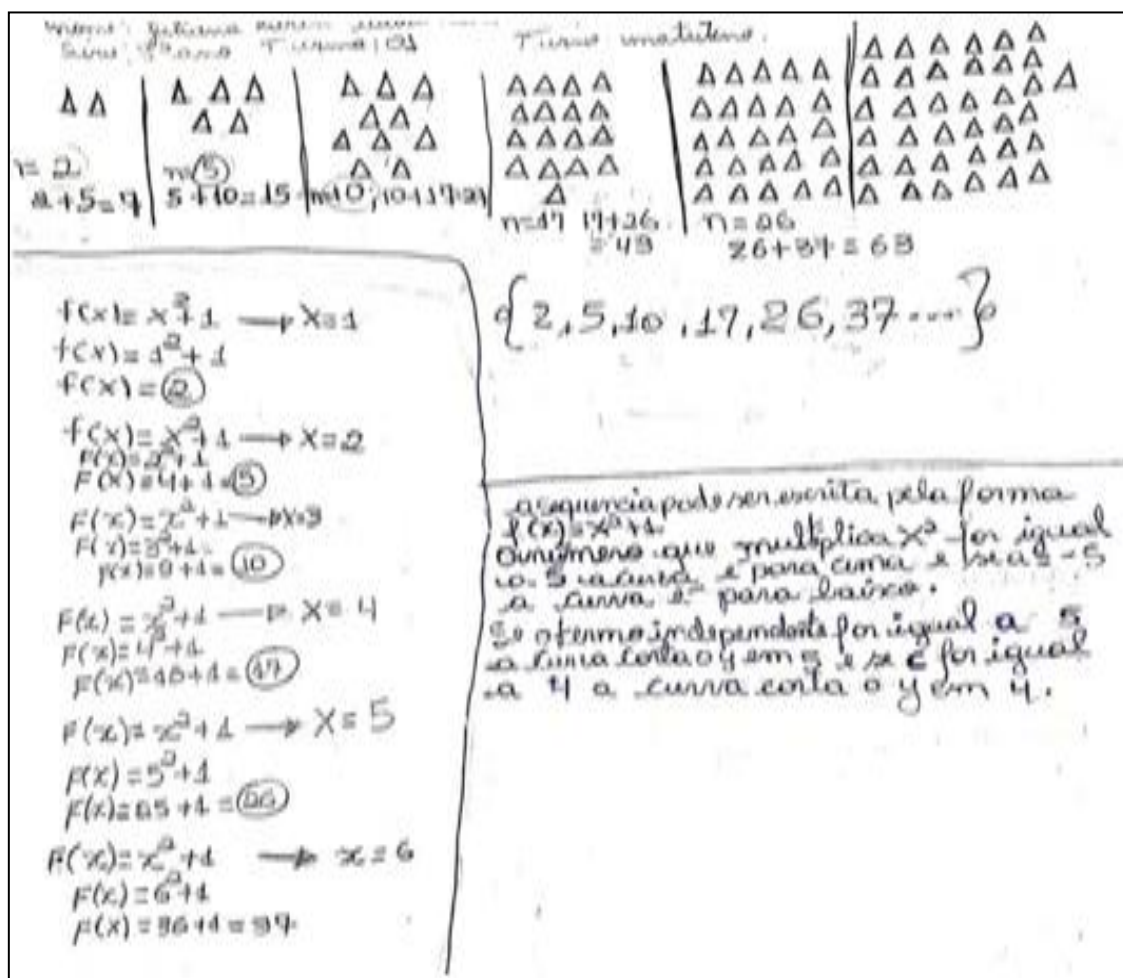 Turma: 01 Turno: matutino.
n= 2
2+5=7
n=5
5+10=15
n=10; 10+17=27
n=17 17+26
= 43
n=26
26+37=63
{2,5,10,17,26,37....}
f(x)= x²+1 → X=1
f(x)= 1²+1
f(x)=2
f(x)= x²+1 → X=2
F(x)=2²+1
F(x)=4+1=5
F(x)=x²+1→X=3
F(x)=3²+1=
F(x)=9+1=10
F(x)=x²+1 → X=4
F(x)=4²+1
F(x)=16+1=17
F(x)=x²+1 → X=5
F(x)=5²+1
F(x)=25+1=26
F(x)=x²+1 → x=6
F(x)=6²+1
F(x)=36+1=37
a sequencia pode ser escrita pela forma
f(x)=x²+1.
O número que multiplica X² for igual
a 5 a curva é para cima e se a=-5
a curva é para baixo.
Se o termo independente for igual a 5
a curva corta o y em 5 e se c for igual
a 4 a curva corta o y em 4.